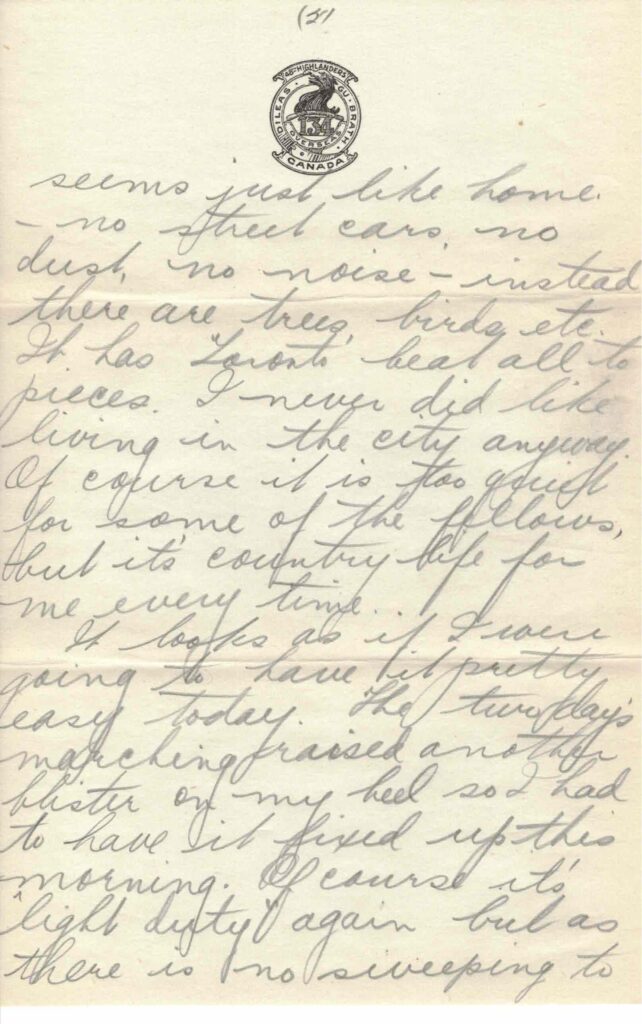 (5)
48TH HIGHLANDERS
DILEAS GU BRATH
134
OVERSEAS
CANADA
seems just like home.
- no street cars, no
dust, no noise - instead
there are trees, birds, etc.
It has Toronto beat all to
pieces. I never did like
living in the city anyway.
Of course it is too quiet
for some of the fellows,
but it's country life for
me every time.
It looks as if I were
going to have it pretty
easy today. The two day's
marching raised another
blister on my heel so I had
to have it fixed up this
morning. Of course it's
"light duty" again but as
there is no sweeping to